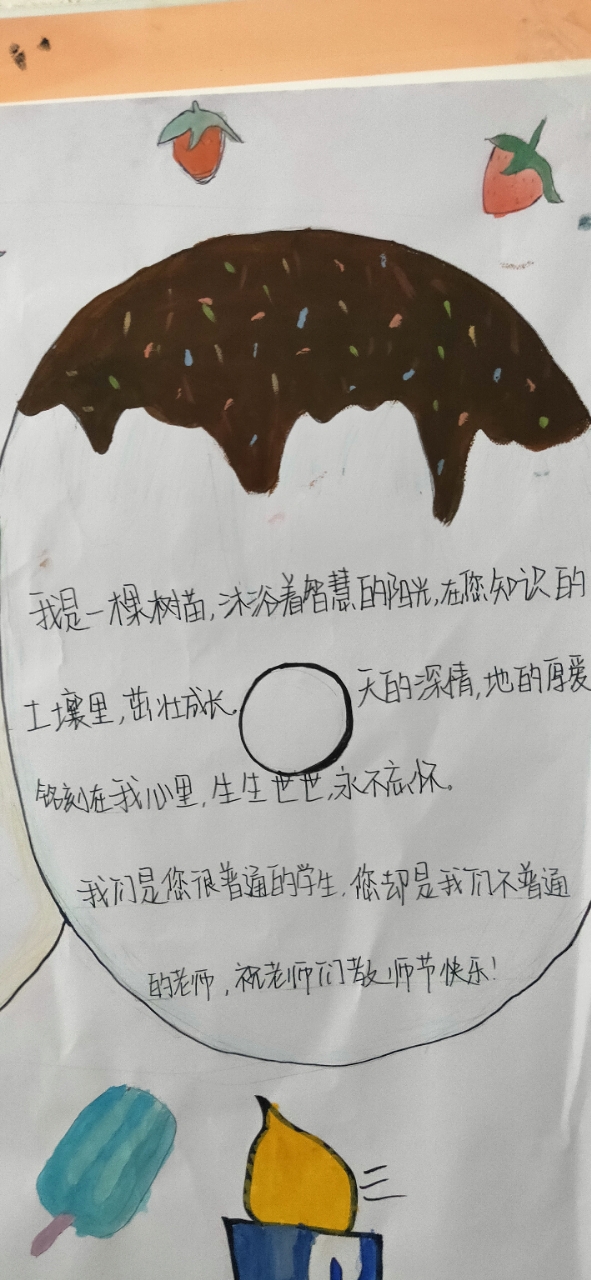 我是一棵树苗,沐浴着智慧的阳光,在您知识的
土壤里,茁壮成长。天的深情,地的厚爱
铭刻在我心里,生生世世,永不忘怀。
我们是您很普通的学生.您却是我们不普通
的老师,祝老师们教师节快乐!